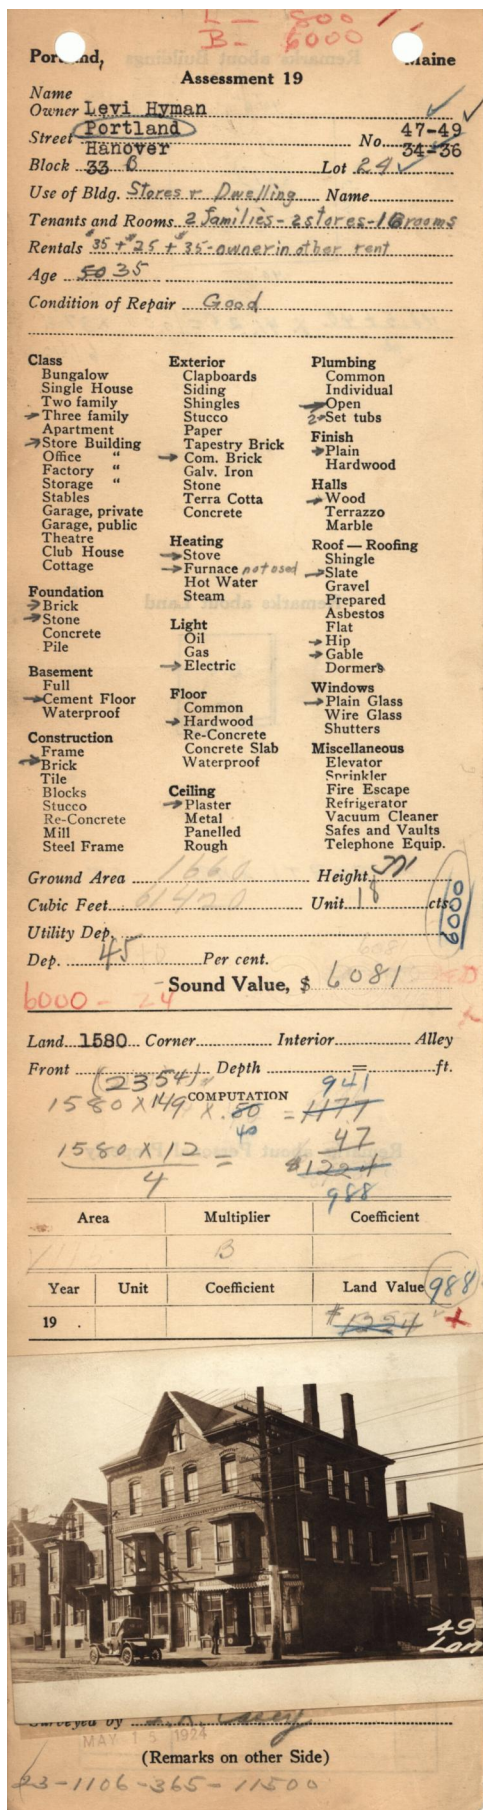 L - 800
B- 6000
Portland, Maine
Assessment 19
Name
Owner Levi Hyman
Street Portland No. 47-49
Hanover 34-36
Block 33 B Lot 24
Use of Bldg. Stores & Dwelling Name
Tenants and Rooms 2 families - 2 stores - 16 rooms
Rentals $35 + $25 + $35 - owner in other rent
Age 50 35
Condition of Repair Good
Class
Bungalow
Single House
Two family
Three family
Apartment
Store Building
Office "
Factory "
Storage "
Stables
Garage, private
Garage, public
Theatre
Club House
Cottage
Foundation
Brick
Stone
Concrete
Pile
Basement
Full
Cement Floor
Waterproof
Construction
Frame
Brick
Tile
Blocks
Stucco
Re-Concrete
Mill
Steel Frame
Exterior
Clapboards
Siding
Shingles
Stucco
Paper
Tapestry Brick
Com. Brick
Galv. Iron
Stone
Terra Cotta
Concrete
Heating
Stove
Furnace not used
Hot Water
Steam
Light
Oil
Gas
Electric
Floor
Common
Hardwood
Re-Concrete
Concrete Slab
Waterproof
Ceiling
Plaster
Metal
Panelled
Rough
Plumbing
Common
Individual
Open
2 Set tubs
Finish
Plain
Hardwood
Halls
Wood
Terrazzo
Marble
Roof — Roofing
Shingle
Slate
Gravel
Prepared
Asbestos
Flat
Hip
Gable
Dormers
Windows
Plain Glass
Wire Glass
Shutters
Miscellaneous
Elevator
Sprinkler
Fire Escape
Refrigerator
Vacuum Cleaner
Safes and Vaults
Telephone Equip.
Ground Area 1660 Height 37
Cubic Feet 61420 Unit 18 cts.
6000
Utility Dep.
Dep. 45 Per cent.
Sound Value, $ 6081
6000 - 24
Land 1580 Corner Interior Alley
Front Depth = ft.
(2354)
COMPUTATION
941
1580 X 149 X .50 = 1177
40
1580 X 12 = 47
4
$1224
988
Area Multiplier Coefficient
B
Year Unit Coefficient Land Value 988
19 . $1224
49
Surveyed by
MAY 15 1924
(Remarks on other Side)
23-1106-365-11500